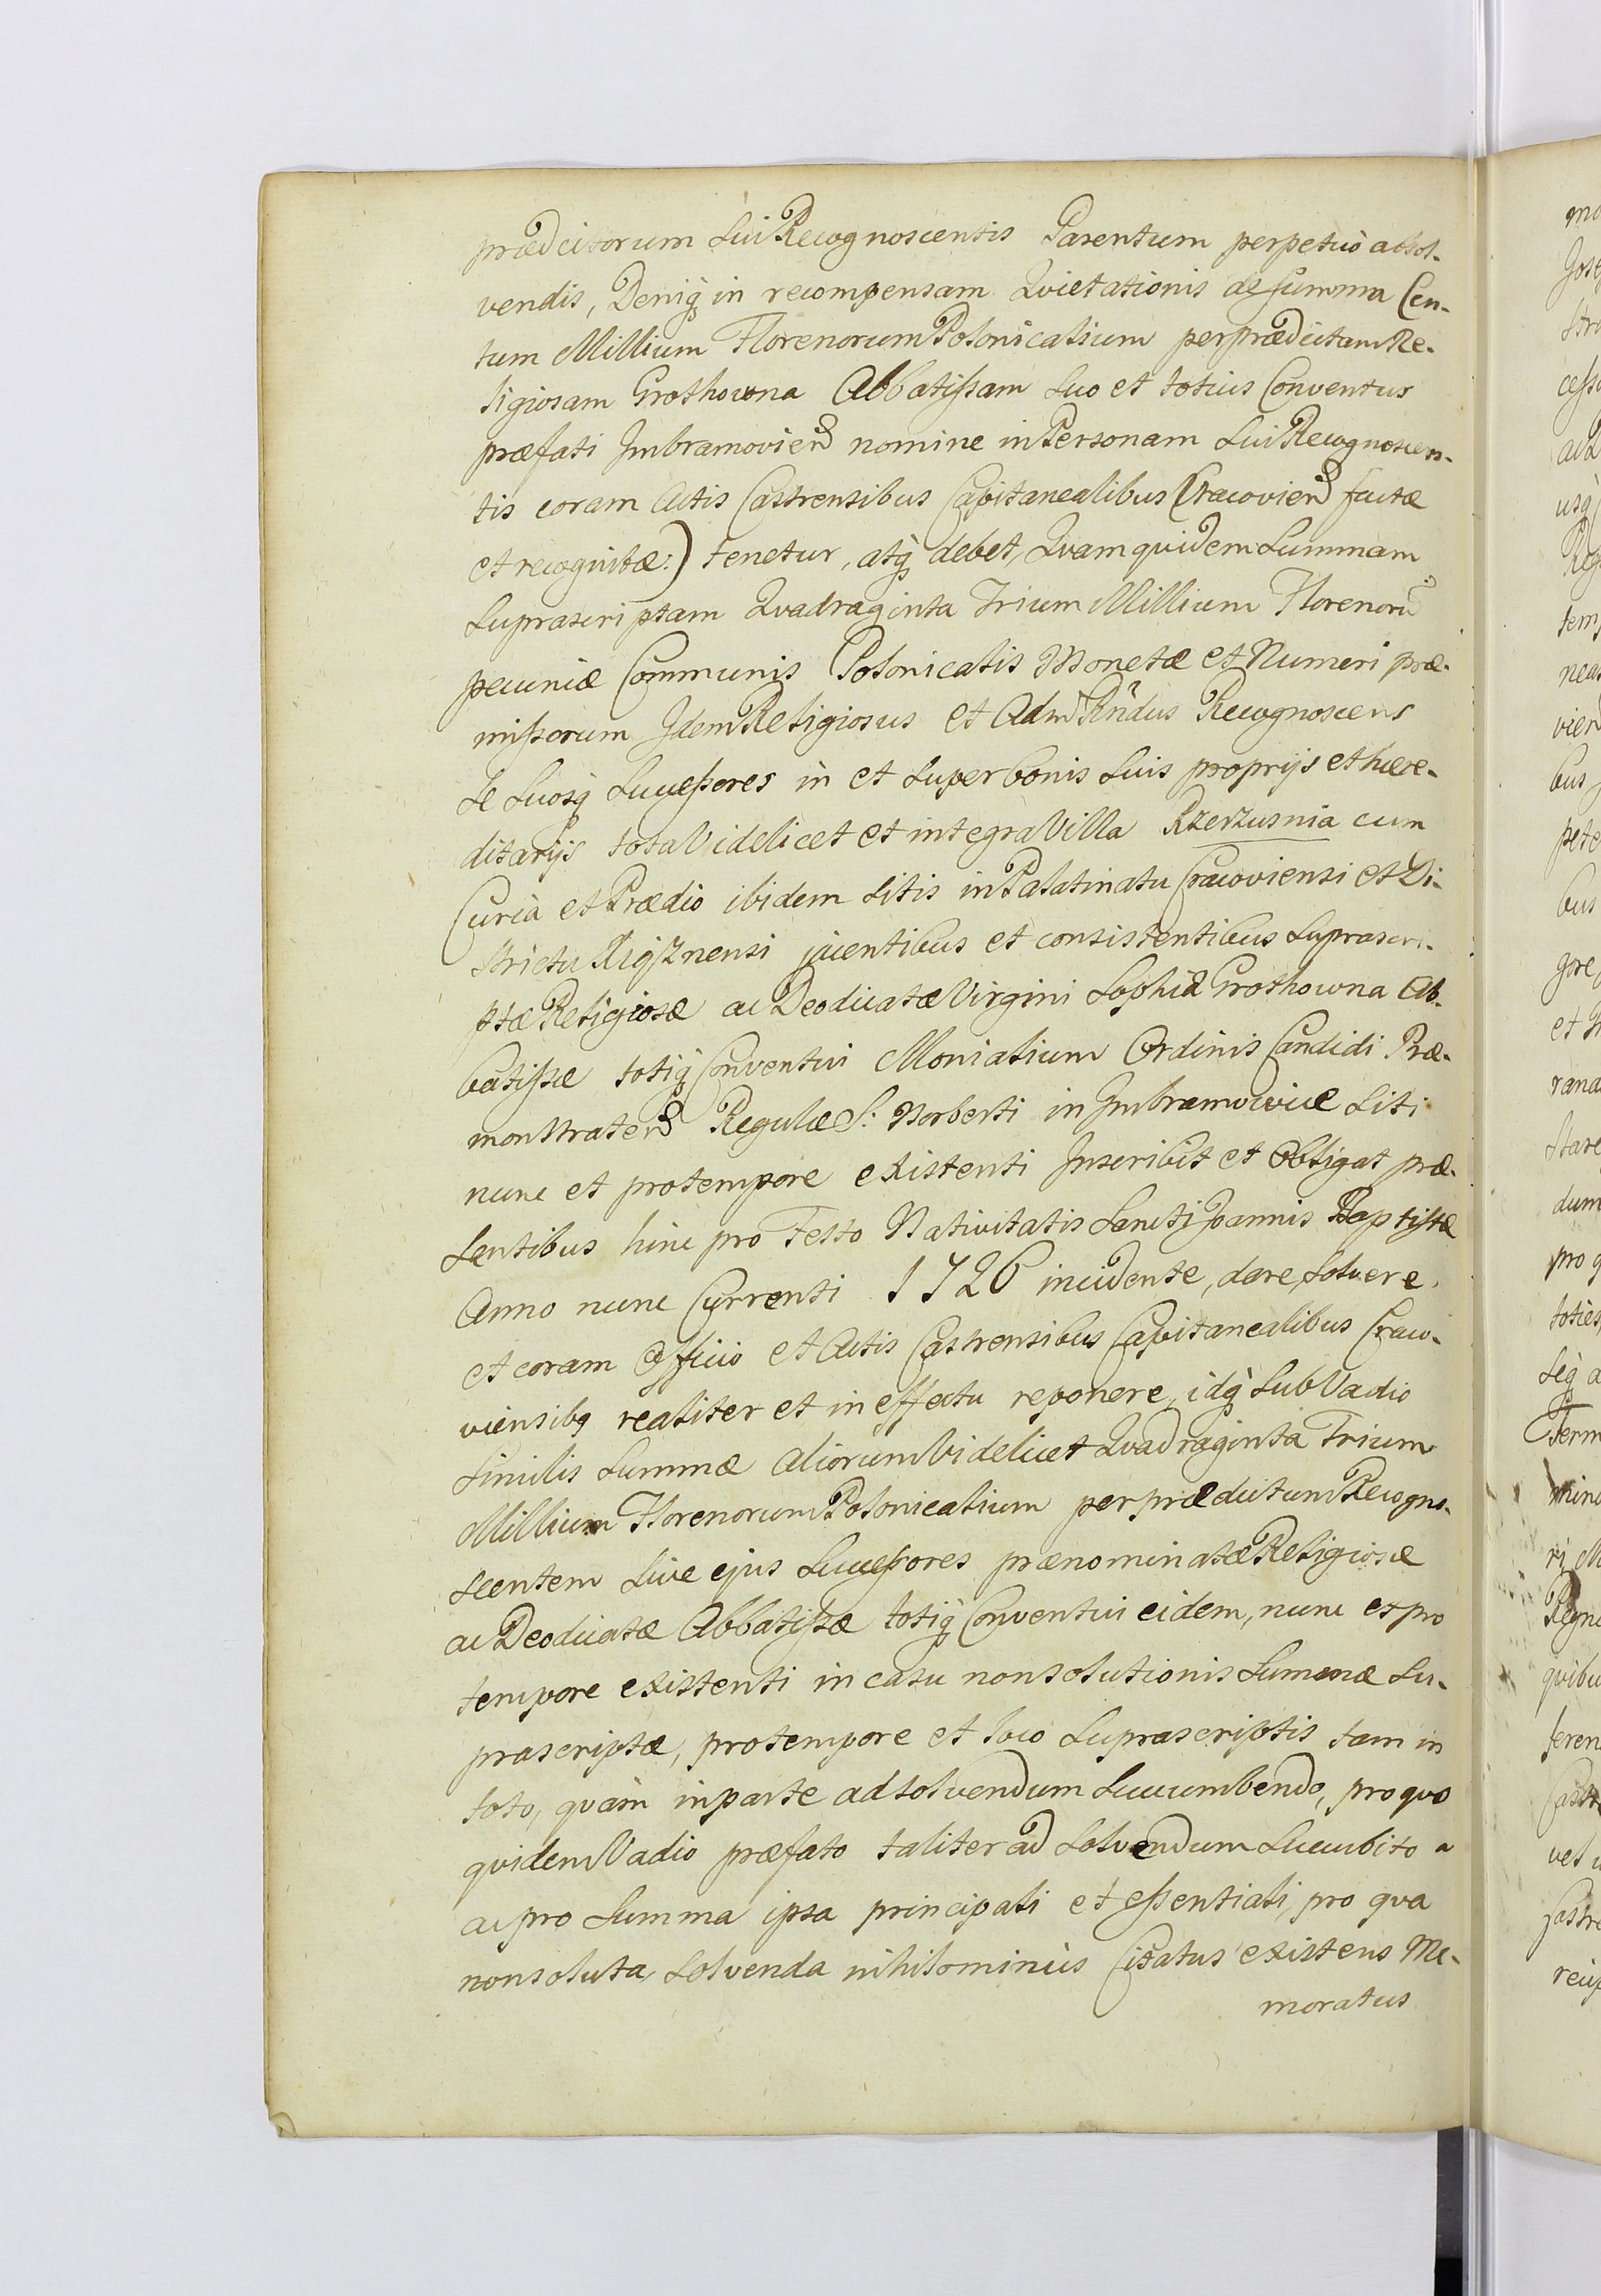 prædictorum Sui Recognoscentis Parentum perpetuò absol-
vendis, Deniq; in recompensam Qvietationis de Summa Cen-
tum Millium Florenorum Polonicalium per prædictam Re-
ligiosam Grothowna Abbatißam Suo et totius Conventus
præfati Jmbramovien nomine in Personam Sui Recognoscen-
tis coram Actis Castrensibus Capitanealibus Cracovien factæ
et recognitæ:) tenetur, atq; debet, Qvam qvidem Summam
Suprascriptam Qvadraginta Trium Millium Florenorũ
pecuniæ Communis Polonicalis Monetæ et Numeri præ-
mißorum Jdem Religiosus et Adm Rñdus Recognoscens
Se Suosq; Succeßores in et Super bonis Suis proprijs et hære-
ditarijs tota Videlicet et integra Villa Rzerzusnia cum
Curia et Prædio ibidem Sitis in Palatinatu Cracoviensi et Di-
strictu Xiąznensi jacentibus et consistentibus Suprascri-
ptæ Religiosæ ac Deodicatæ Virgini Sophiæ Grothowna Ab-
batißæ totiq; Conventui Monialium Ordinis Candidi Præ-
monstraten Regulæ S: Norberti in Jmbramowice Siti
nunc et pro tempore existenti Jnscribit et Obligat præ-
sentibus hinc pro Festo Nativitatis Sancti Joannis Baptistæ
Anno nunc Currenti 1726 incidente, dare, Solvere
et coram Officio et Actis Castrensibus Capitanealibus Craco-
viensibq realiter et in effectu reponere, idq; Sub Vadio
Similis Summæ Aliorum Videlicet Qvadraginta Trium
Millium Florenorum Polonicalium per prædictum Recogno-
scentem Sive ejus Succeßores prænominatæ Religiosæ
ac Deodicatæ Abbatißæ totiq; Conventui eidem, nunc et pro
tempore existenti in casu non solutionis Summæ Su-
prascriptæ, pro tempore et loco Suprascriptis tam in
toto, qvàm in parte ad solvendum Succumbendo, pro qvo
qvidem Vadio præfato taliter ad Solvendum Succubito
ac pro Summa ipsa principali et eßentiali, pro qva
non soluta, Solvenda nihilominùs Citatus existens Me-
moratus